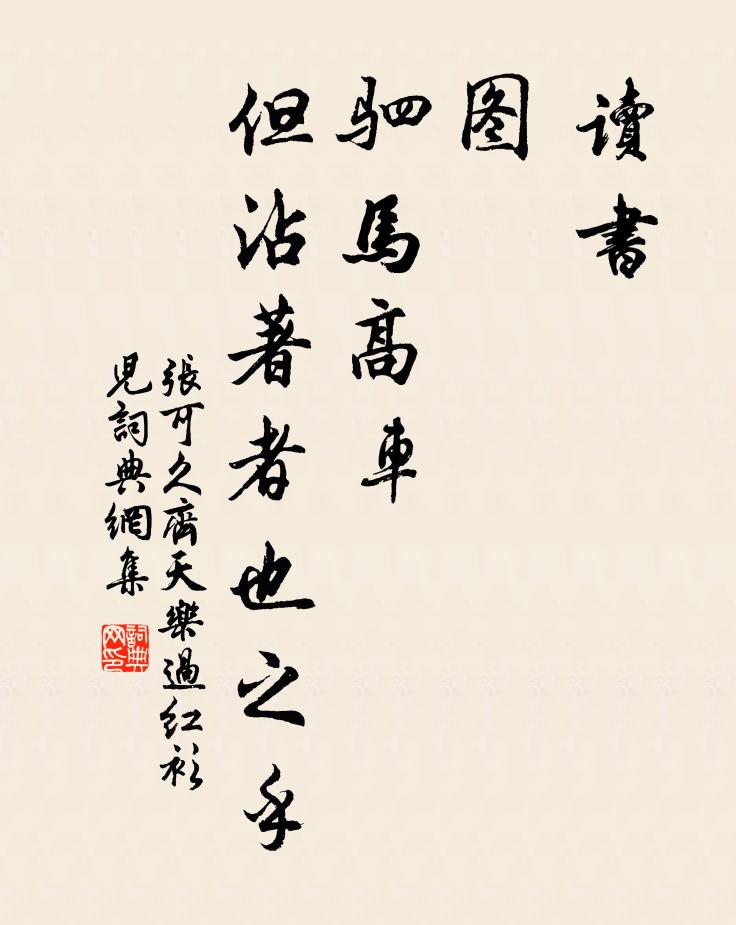 讀書
图
驷馬高車
但沾著者也之乎
張可久齊天樂過红衫
兒詞典網集
詞典
网印